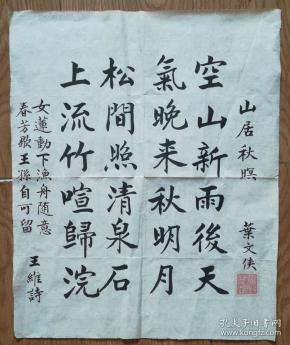 山居秋暝
葉文俠
空山新雨後天
氣晚来秋明月
松間照清泉石
上流竹喧歸浣
女蓮動下漁舟随意
春芳歇王孫自可留
王維詩
孔夫子旧书网